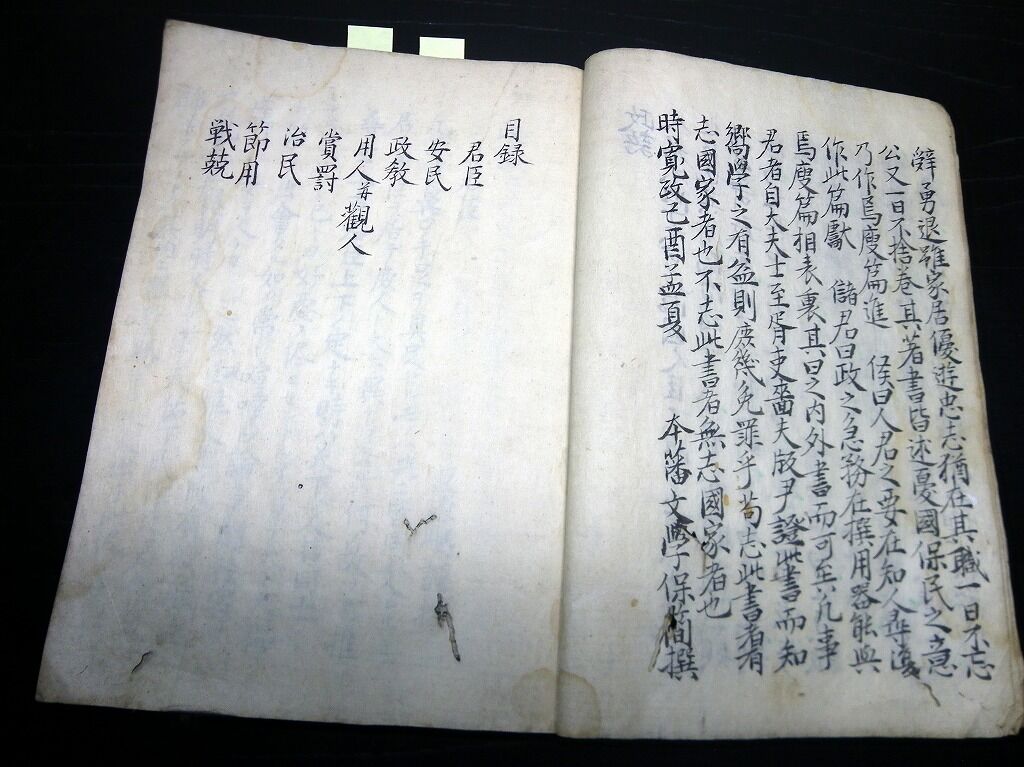 辭勇退雖家居優遊忠志猶在其職一日不忘
公又一日不捨卷其著書皆述憂國保民之意
乃作焉廋篇進 侯曰人君之要在知人尋
作此篇獻 儲君曰政之急務在撰用器能與
焉廋篇相表裏其曰之内外書而可至凡事
君者自大夫士至胥吏嗇夫版尹證此書而知
嚮學之有益則庶幾免罪乎苟志此書者有
志國家者也不志此書者無志國家者也
時寛政己酉孟夏 本藩文學保簡撰
目録
君臣
安民
政教
用人并觀人
賞罰
治民
節用
戦兢